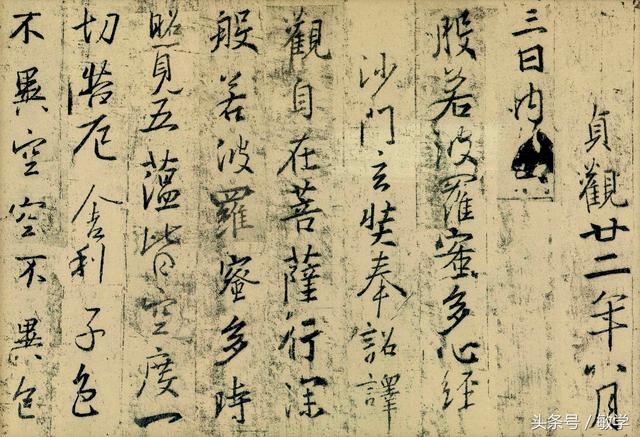 貞觀廿二年八月
三日内
般若波羅蜜多心經
沙門玄奘奉詔譯
觀自在菩薩行深
般若波羅蜜多時
照見五蘊皆空度一
切苦厄舍利子色
不異空空不異色
头条号 / 敏学